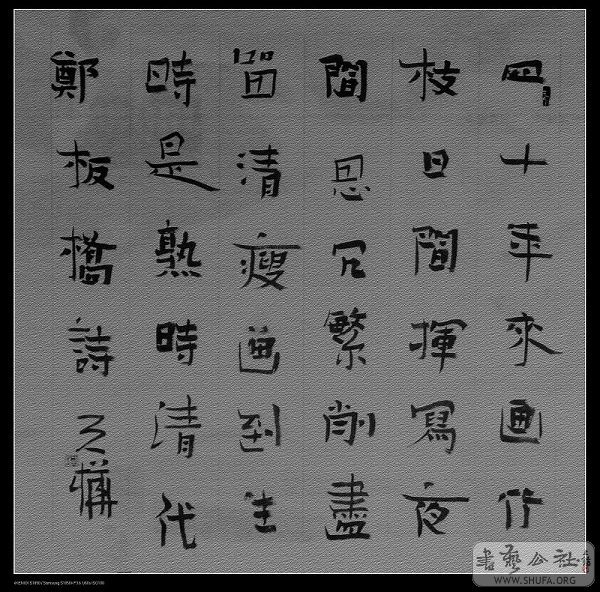 四十年來画竹
枝日間揮寫夜
間思冗繁削盡
留清瘦画到生
時是熟時清代
鄭板橋詩
書藝公社
WWW.SHUFA.ORG